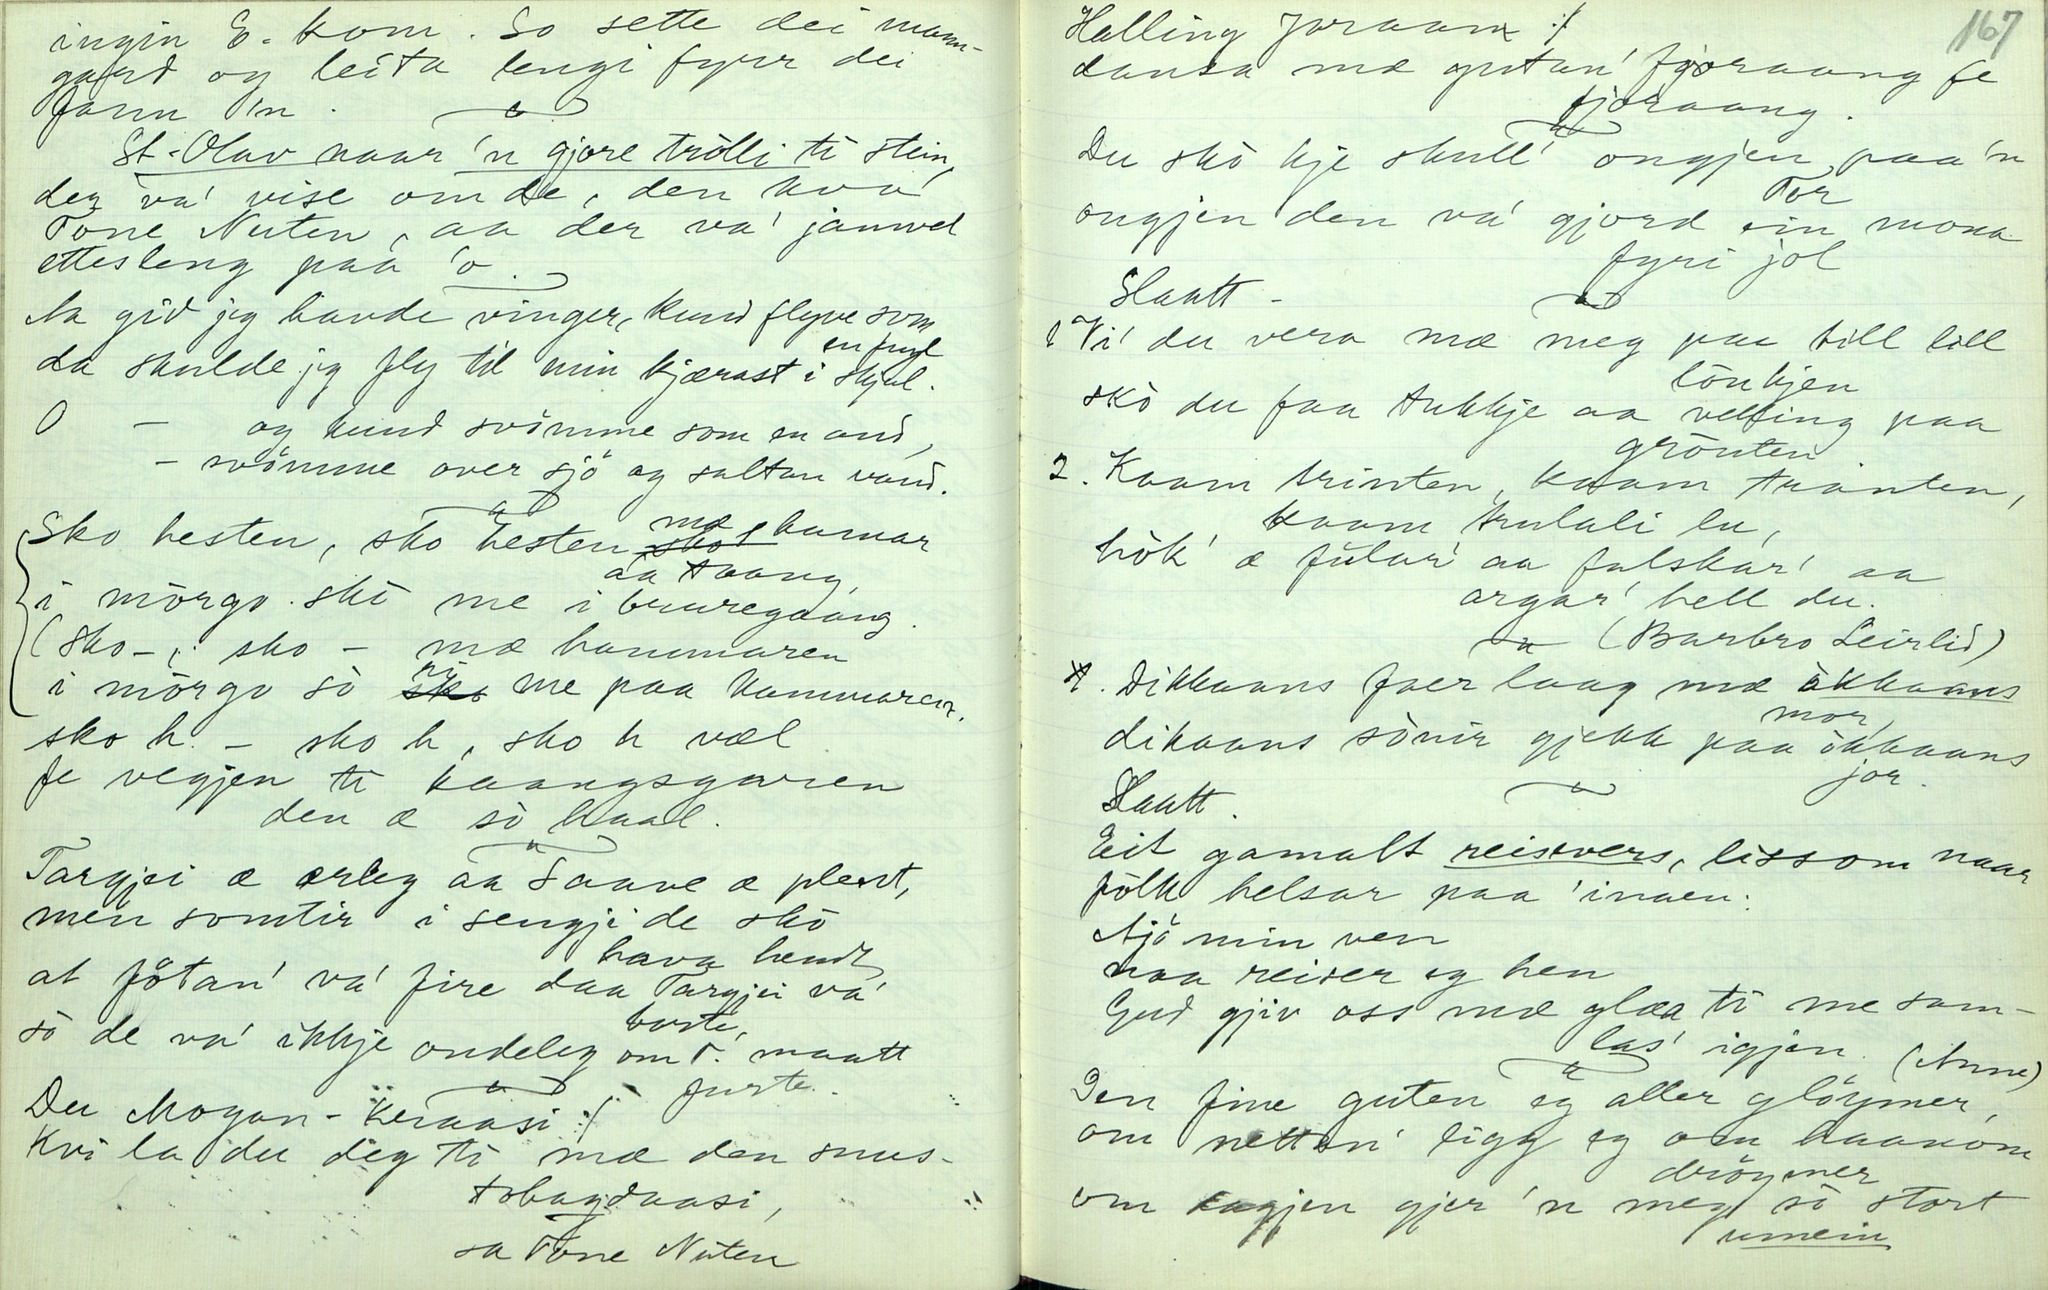 ingin E. kom. So sette dei mann-
gard og leita lengi fyrr dei
fann 'n.
St. Olav naar 'n gjore trölli ti stein,
der va' vise om de, den kva'
Tone Nuten, aa der va' jamvel
ettesleng paa 'o.
Aa gid jeg havde vinger, kund flyve som
en fugl
da skulde jeg fly til min kjærast i skjul.
O — og kund svömme som en and,
— svömme over sjö og saltan vand.
Sko hesten, sko hesten mæ hamar
aa taang,
i mörgo skò me i bruregaang.
(sko —, sko — mæ hammaren
i mörgo sò ri me paa kammaren.
sko h. — sko h, sko h væl
fe vegjen ti kaangsgaren
den æ sò haal.
Targjei æ ærleg aa Saave æ plent,
men somtir i sengji de skò
hava hendt
at fötan' va' fire daa Targjei va'
borte,
sò de va' ikkje ondeleg om T. maatt
furte.
Du Mogan-Kraasi :/
Kvi la du deg ti mæ den snus-
tobagdaasi,
sa Tone Nuten
167
Halling Joraan :/
dansa mæ gutan' fjoraang fe
fjoraang.
Du skò kje skull' ongjen paa 'n
Tor
ongjen den va' gjord ein mona
fyri jol
Slaatt -
1 Vi' du vera mæ meg paa till lill
lönkjen
skò du faa tukkje aa velling paa
grönten
2. Kaam trinten, kaam tranten,
kaam trulali lu,
hòk' æ fular' aa falskar' aa
argar' hell du.
(Barbro Leirlid)
Dikkaans faer laag mæ òkkaans
mor,
dikaans sònir gjekk paa òkkaans
jor.
Slaatt.
Eit gamalt reisevers, lissom naar
fòlk helsar paa 'inaen:
Ajö min ven
naa reiser eg hen
Gud gjiv oss mæ glæa ti me sam-
las' igjen. (Anne)
Den fine guten eg aller glöymer,
om netten' ligg eg om haanom
dröymer
om dagjen gjer 'n meg sò stort
umein